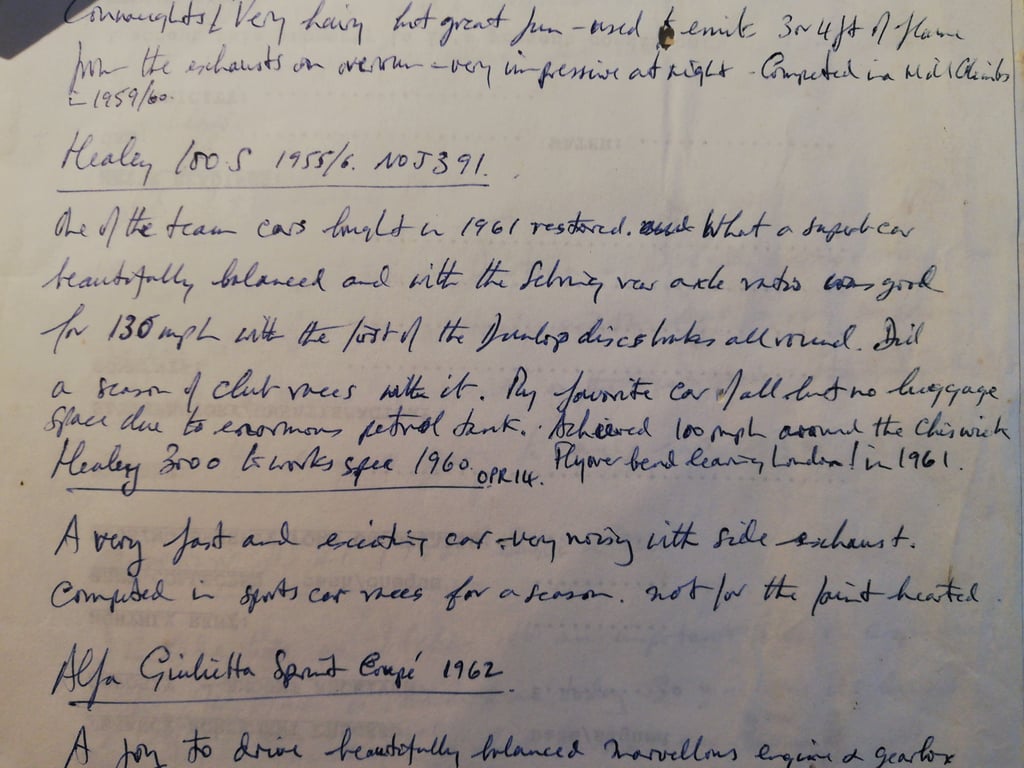 Connaughts! Very hairy but great fun - used to emit 3 or 4 ft of flame
from the exhausts on overrun - very impressive at night - Competed in Hill Climbs
in 1959/60.
Healey 100 S 1955/6. NOJ 391.
One of the team cars bought in 1961 restored. What a superb car
beautifully balanced and with the Sebring rear axle ratio was good
for 130 mph with the first of the Dunlop disc brakes all round. Did
a season of club races with it. My favorite car of all but no luggage
space due to enormous petrol tank. Achieved 100 mph around the Chiswick
Flyover bend leaving London! in 1961.
Healey 3000 to works spec 1960. OPR 14.
A very fast and exciting car - very noisy with side exhaust.
Competed in sports car races for a season. not for the faint hearted.
Alfa Giulietta Sprint Coupé 1962.
A joy to drive beautifully balanced marvellous engine & gearbox